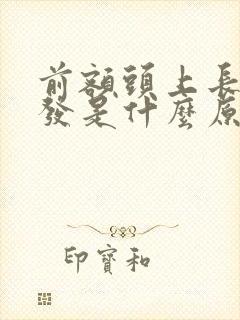 前額頭上長
發是什麼原
印寶和